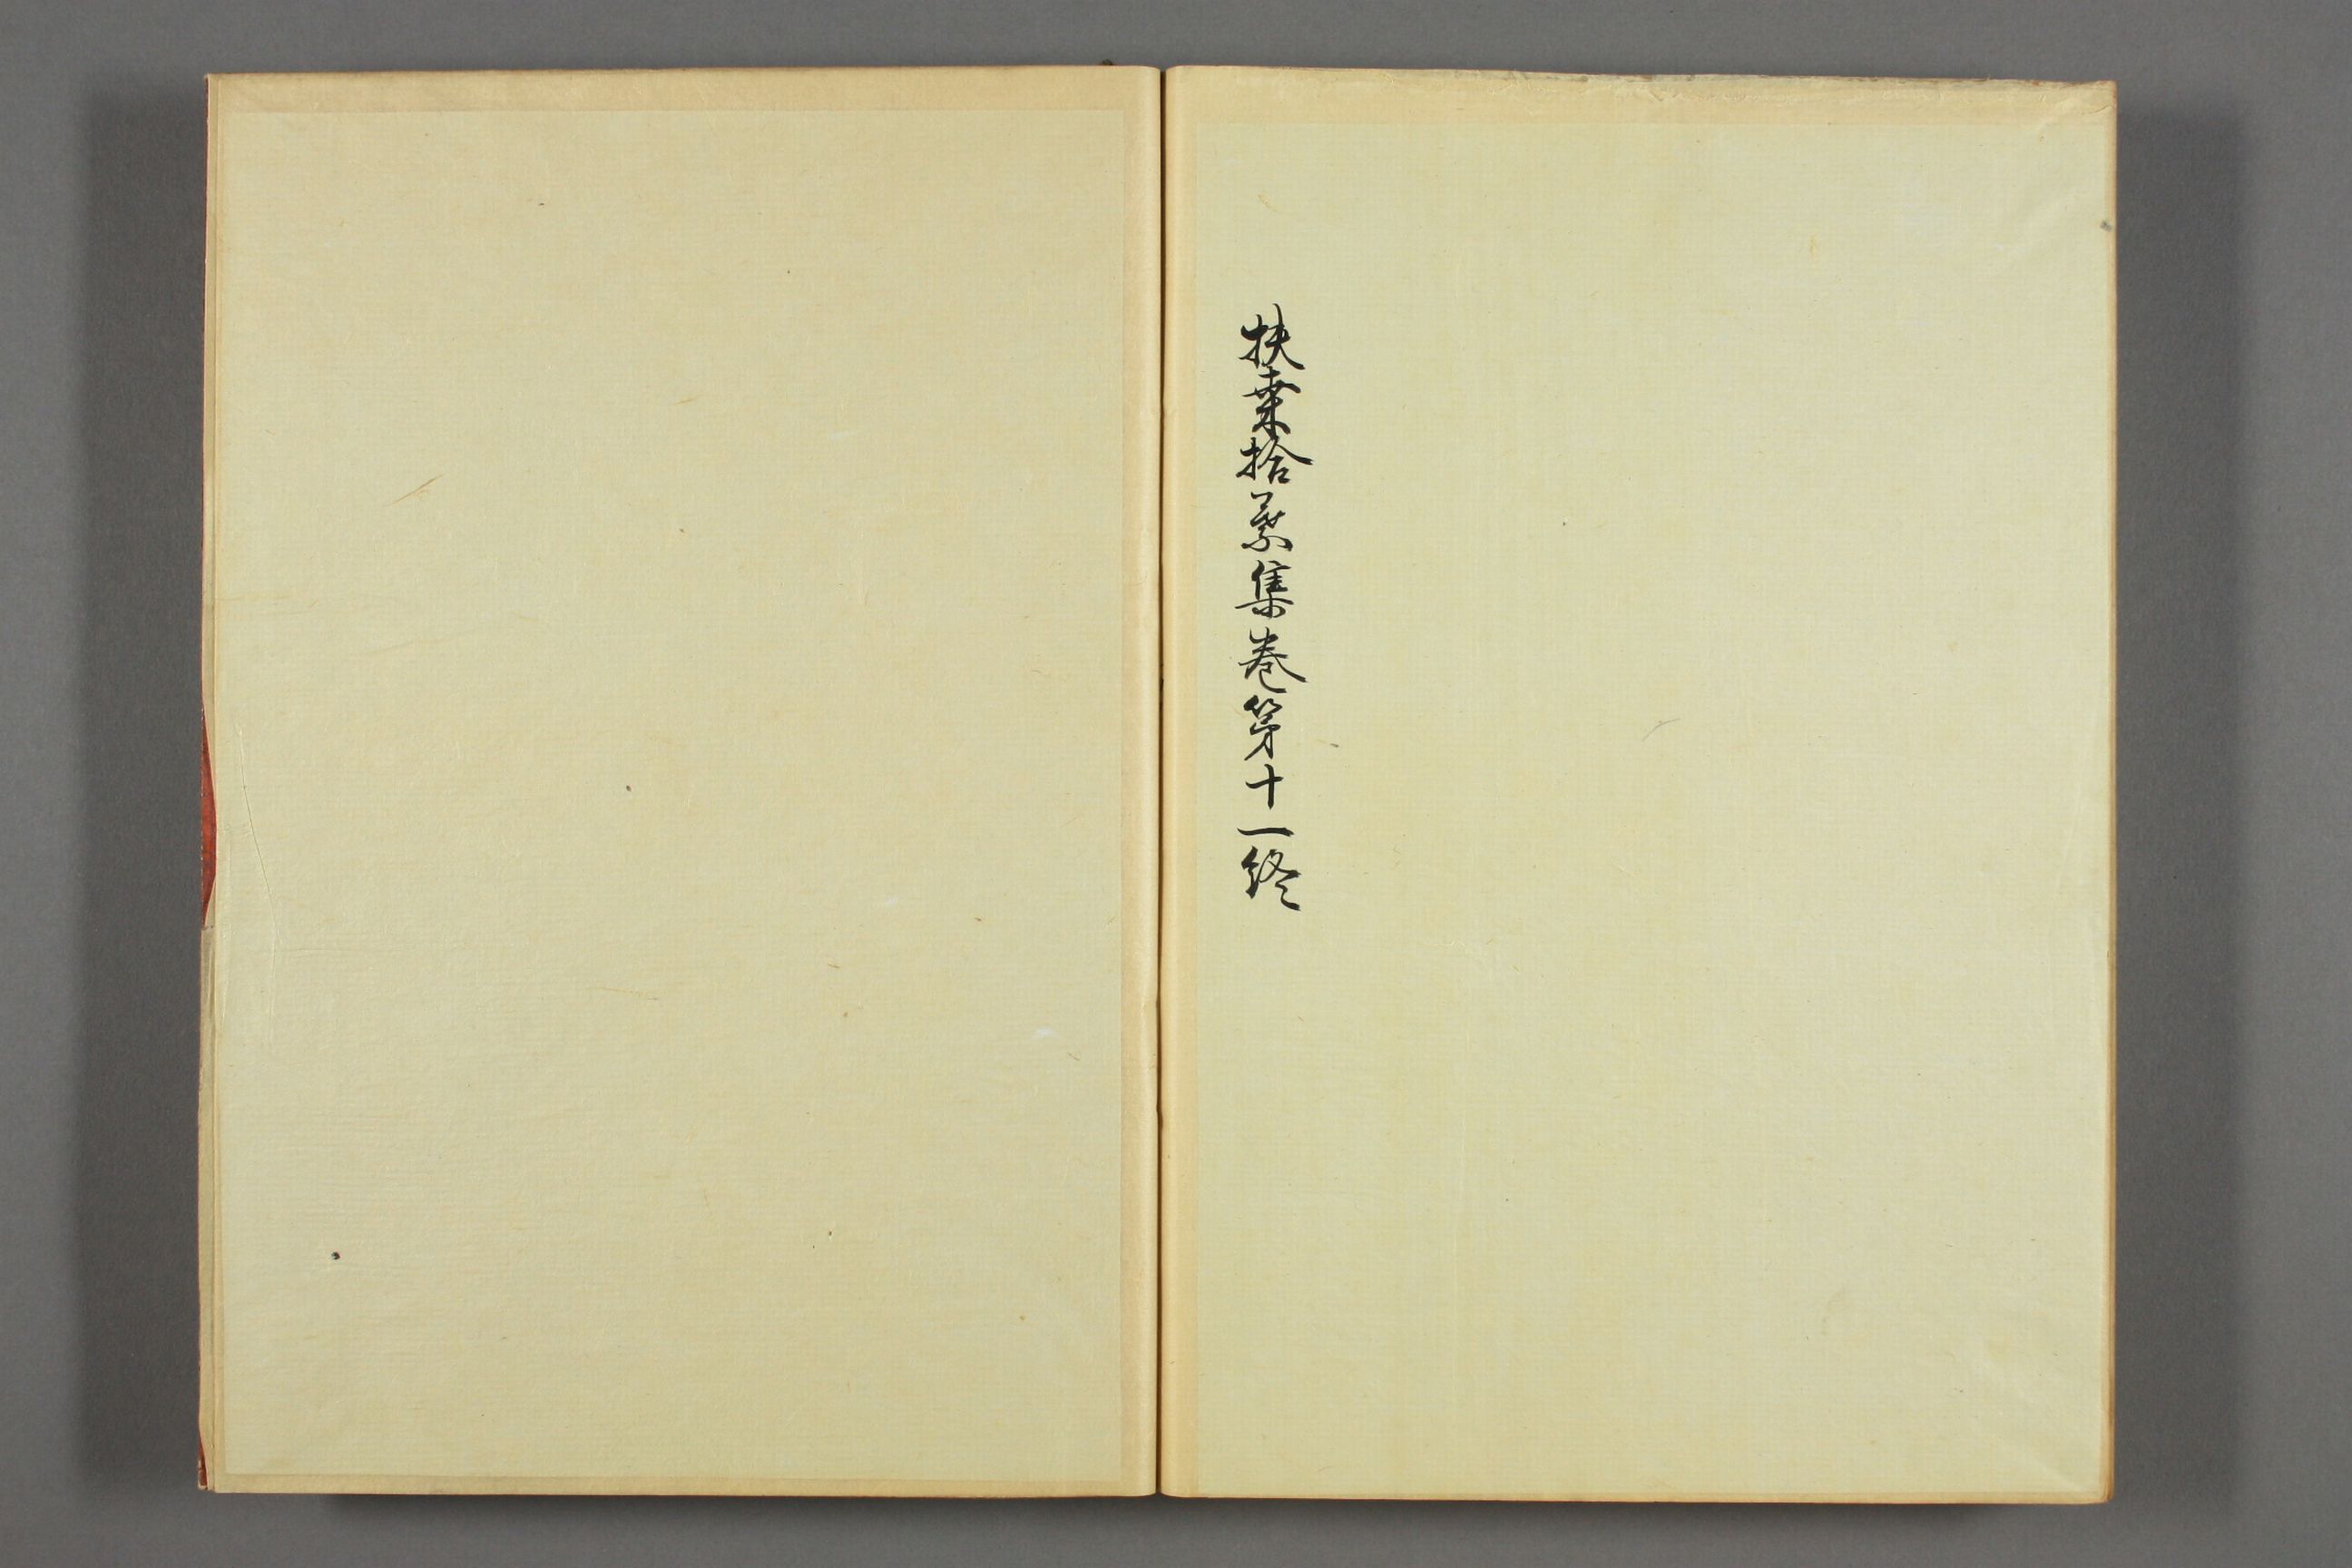 扶桒拾葉集巻第十一終